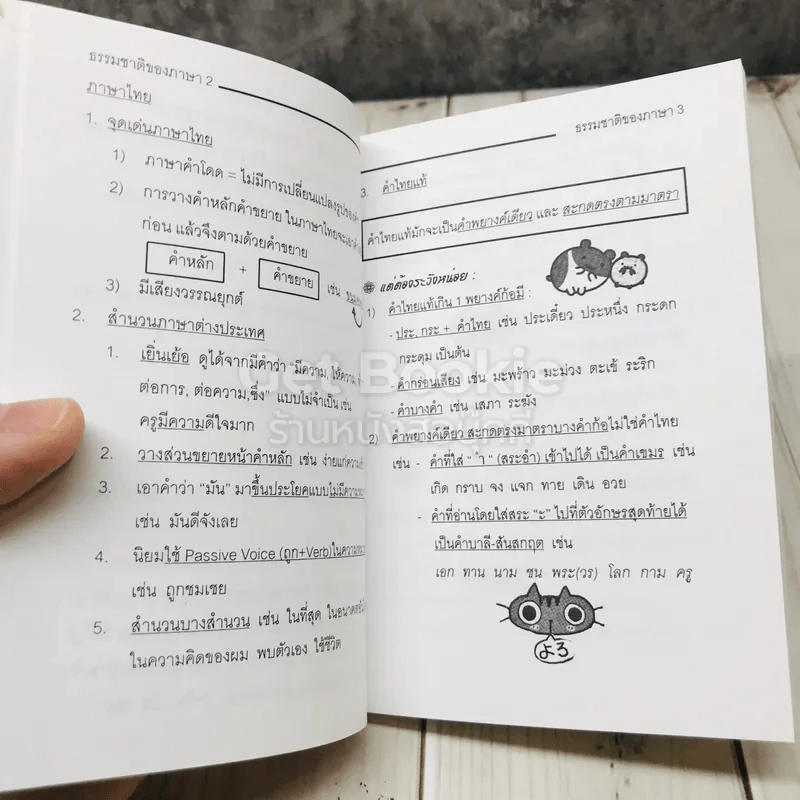 ธรรมชาติของภาษา 2
ภาษาไทย
1. จุดเด่นภาษาไทย
1) ภาษาคำโดด = ไม่มีการเปลี่ยนแปลงรูป
2) การวางคำหลักคำขยาย ในภาษาไทยจะ
ก่อน แล้วจึงตามด้วยคำขยาย
คำหลัก + คำขยาย เช่น
3) มีเสียงวรรณยุกต์
2. สำนวนภาษาต่างประเทศ
1. เยิ่นเย้อ ดูได้จากมีคำว่า "มีความ, ให้ความ,
ต่อการ, ต่อความ,ซึ่ง" แบบไม่จำเป็น เช่น
ครูมีความดีใจมาก
2. วางส่วนขยายหน้าคำหลัก เช่น ง่ายแก่
3. เอาคำว่า "มัน" มาขึ้นประโยคแบบไม่มี
เช่น มันดีจังเลย
4. นิยมใช้ Passive Voice (ถูก+Verb)ใน
เช่น ถูกชมเชย
5. สำนวนบางสำนวน เช่น ในที่สุด ในอนาคต
ในความคิดของผม พบตัวเอง ใช้ชีวิต
ธรรมชาติของภาษา 3
3. คำไทยแท้
คำไทยแท้มักจะเป็นคำพยางค์เดียว และ สะกดตรงตามมาตรา
แต่ต้องระวังหน่อย :
1) คำไทยแท้เกิน 1 พยางค์ก็อมี :
- ประ, กระ + คำไทย เช่น ประเดี๋ยว ประหนึ่ง กระดก
กระดุม เป็นต้น
- คำกร่อนเสียง เช่น มะพร้าว มะม่วง ตะเข้ ระริก
- คำบางคำ เช่น เสภา ระฆัง
2) คำพยางค์เดียว สะกดตรงมาตราบางคำก้อไม่ใช่คำไทย
เช่น - คำที่ใส่ " ำ " (สระอำ) เข้าไปได้ เป็นคำเขมร เช่น
เกิด กราบ จง แจก ทาย เดิน อวย
- คำที่อ่านโดยใส่สระ "ะ" ไปที่ตัวอักษรสุดท้ายได้
เป็นคำบาลี-สันสกฤต เช่น
เอก ทาน นาม ชน พระ(วร) โลก กาม ครู
よろ
Get Bookie
ร้านหนังสือเก็ทบุ๊คกี้